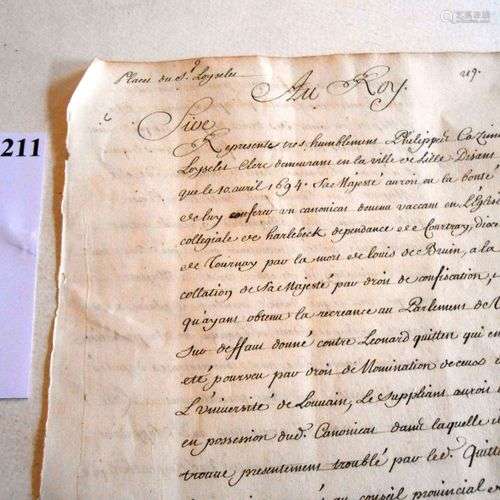 Placet du Sr. Loyselet
219.
Au Roy.
Sire
Represente tres humblement Philippe Cazim
Loyselet Clerc demeurant en la ville de Lille Disant
que le 10 avril 1694. Sa Majesté auroit eu la bonté
de luy conferer un canonicat devenu vaccant en l'Eglise
collegiale de harlebeck dependance de Courtray, dioce
de Tournay par la mort de louis de Bruin, a la
collation de Sa Majesté par droit de confiscation, e
qu'ayant obtenu la recreance au Parlement de
sur deffaut donné contre Leonard quitten qui en
eté pourveu par droit de Nomination de ceux
L'université de Louvain, Le suppliant auroit
en possession dud. Canonicat dans laquelle il
trouve presentement troublé par led. Quitte
au conseil provincial
211